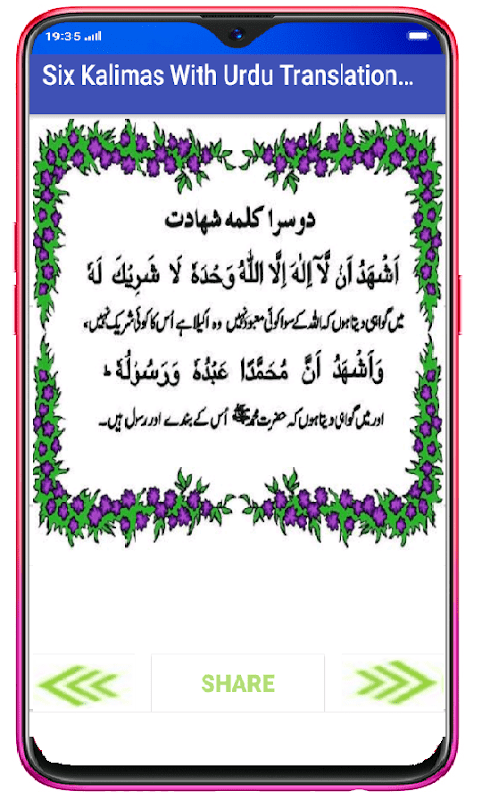 19:35
Six Kalimas With Urdu Translation...
دوسرا کلمہ شہادت
اَشْهَدُ اَنْ لَّآ اِلٰهَ اِلَّا اللّٰهُ وَحْدَهٗ لَا شَرِيْكَ لَهٗ
میں گواہی دیتا ہوں کہ اللہ کے سوا کوئی معبود نہیں وہ اکیلا ہے اُس کا کوئی شریک نہیں،
وَاَشْهَدُ اَنَّ مُحَمَّدًا عَبْدُهٗ وَرَسُوْلُهٗ ط
اور میں گواہی دیتا ہوں کہ حضرت محمد ﷺ اُس کے بندے اور رسول ہیں۔
SHARE